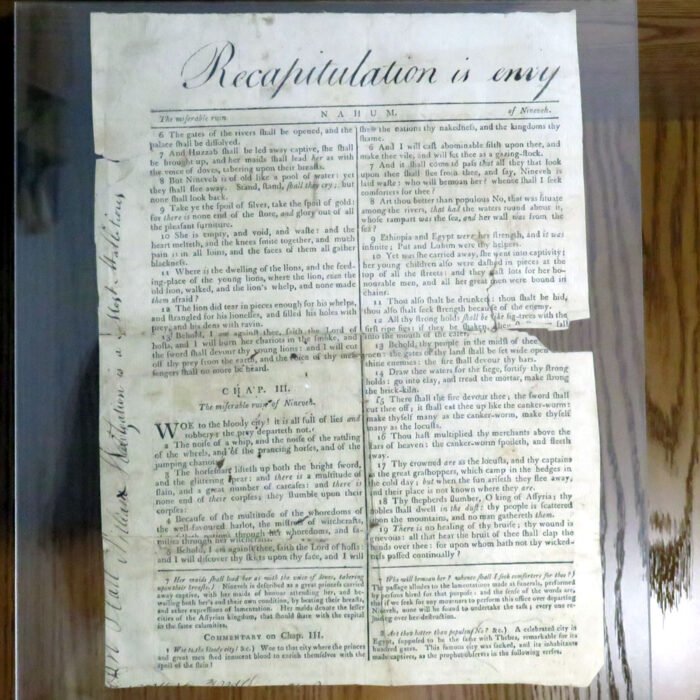 Recapitulation is envy
The miserable ruin NAHUM. of Nineveh.
6 The gates of the rivers shall be opened, and the
palace shall be dissolved.
7 And Huzzab shall be led away captive, she shall
be brought up, and her maids shall lead her as with
the voice of doves, tabering upon their breasts.
8 But Nineveh is of old like a pool of water: yet
they shall flee away. Stand, stand, shall they cry; but
none shall look back.
9 Take ye the spoil of silver, take the spoil of gold:
for there is none end of the store, and glory out of all
the pleasant furniture.
10 She is empty, and void, and waste: and the
heart melteth, and the knees smite together, and much
pain is in all loins, and the faces of them all gather
blackness.
11 Where is the dwelling of the lions, and the feed-
ing-place of the young lions, where the lion, even the
old lion, walked, and the lion's whelp, and none made
them afraid?
12 The lion did tear in pieces enough for his whelps,
and strangled for his lionesses, and filled his holes with
prey, and his dens with ravin.
13 Behold, I am against thee, saith the Lord of
hosts, and I will burn her chariots in the smoke, and
the sword shall devour thy young lions: and I will cut
off thy prey from the earth, and the voice of thy
sengers shall no more be heard.
CHAP. III.
The miserable ruin of Nineveh.
WOE to the bloody city! it is all full of lies and
robbery; the prey departeth not.
2 The noise of a whip, and the noise of the rattling
of the wheels, and of the prancing horses, and of the
jumping chariots.
3 The horseman lifteth up both the bright sword,
and the glittering spear: and there is a multitude of
slain, and a great number of carcases: and there is
none end of their corpses; they stumble upon their
corpses:
4 Because of the multitude of the whoredoms of
the well-favoured harlot, the mistress of witchcrafts,
that selleth nations through her whoredoms, and fa-
milies through her witchcrafts.
5 Behold, I am against thee, saith the Lord of hosts:
and I will discover thy skirts upon thy face, and I will
shew the nations thy nakedness, and the kingdoms thy
shame.
6 And I will cast abominable filth upon thee, and
make thee vile, and will set thee as a gazing-stock.
7 And it shall come to pass that all they that look
upon thee shall flee from thee, and say, Nineveh is
laid waste: who will bemoan her? whence shall I seek
comforters for thee?
8 Art thou better than populous No, that was situate
among the rivers, that had the waters round about it,
whose rampart was the sea, and her wall was from the
sea?
9 Ethiopia and Egypt were her strength, and it was
infinite; Put and Lubim were thy helpers.
10 Yet was she carried away, she went into captivity;
her young children also were dashed in pieces at the
top of all the streets: and they cast lots for her ho-
nourable men, and all her great men were bound in
chains.
11 Thou also shalt be drunken: thou shalt be hid,
thou also shalt seek strength because of the enemy.
12 All thy strong holds shall be like fig-trees with the
first ripe figs: if they be shaken, they fall
into the mouth of the eater.
13 Behold, thy people in the midst of thee
men: the gates of thy land shall be set wide open
thine enemies: the fire shall devour thy bars.
14 Draw thee waters for the siege, fortify thy strong
holds: go into clay, and tread the mortar, make strong
the brick-kiln.
15 There shall the fire devour thee; the sword shall
cut thee off; it shall eat thee up like the canker-worm:
make thyself many as the canker-worm, make thyself
many as the locusts.
16 Thou hast multiplied thy merchants above the
stars of heaven: the canker-worm spoileth, and fleeth
away.
17 Thy crowned are as the locusts, and thy captains
as the great grashoppers, which camp in the hedges in
the cold day; but when the sun ariseth they flee away,
and their place is not known where they are.
18 Thy shepherds slumber, O king of Assyria; thy
nobles shall dwell in the dust: thy people is scattered
upon the mountains, and no man gathereth them.
19 There is no healing of thy bruise; thy wound is
grievous: all that hear the bruit of thee shall clap the
hands over thee: for upon whom hath not thy wicked-
ness passed continually?
7 Her maids shall lead her as with the voice of doves, tabering
upon their breasts.] Nineveh is described as a great princess carried
away captive, with her maids of honour attending her, and be-
wailing both her's and their own condition, by beating their breasts,
and other expressions of lamentation. Her maids denote the lesser
cities of the Assyrian kingdom, that should share with the capital
in the same calamities.
COMMENTARY on Chap. III.
1 Woe to the bloody city! &c.] Woe to that city where the princes
and great men shed innocent blood to enrich themselves with the
spoil of the slain!
7 Who will bemoan her? whence shall I seek comforters for thee?]
The passage alludes to the lamentations made at funerals, performed
by persons hired for that purpose: and the sense of the words are,
that if we seek for any mourners to perform this office over departing
Nineveh, none will be found to undertake the task; every one re-
joicing over her destruction.
8 Art thou better than populous No? &c.] A celebrated city in
Egypt, supposed to be the same with Thebes, remarkable for its
hundred gates. This famous city was sacked, and its inhabitants
made captives, as the prophet observes in the following verses.